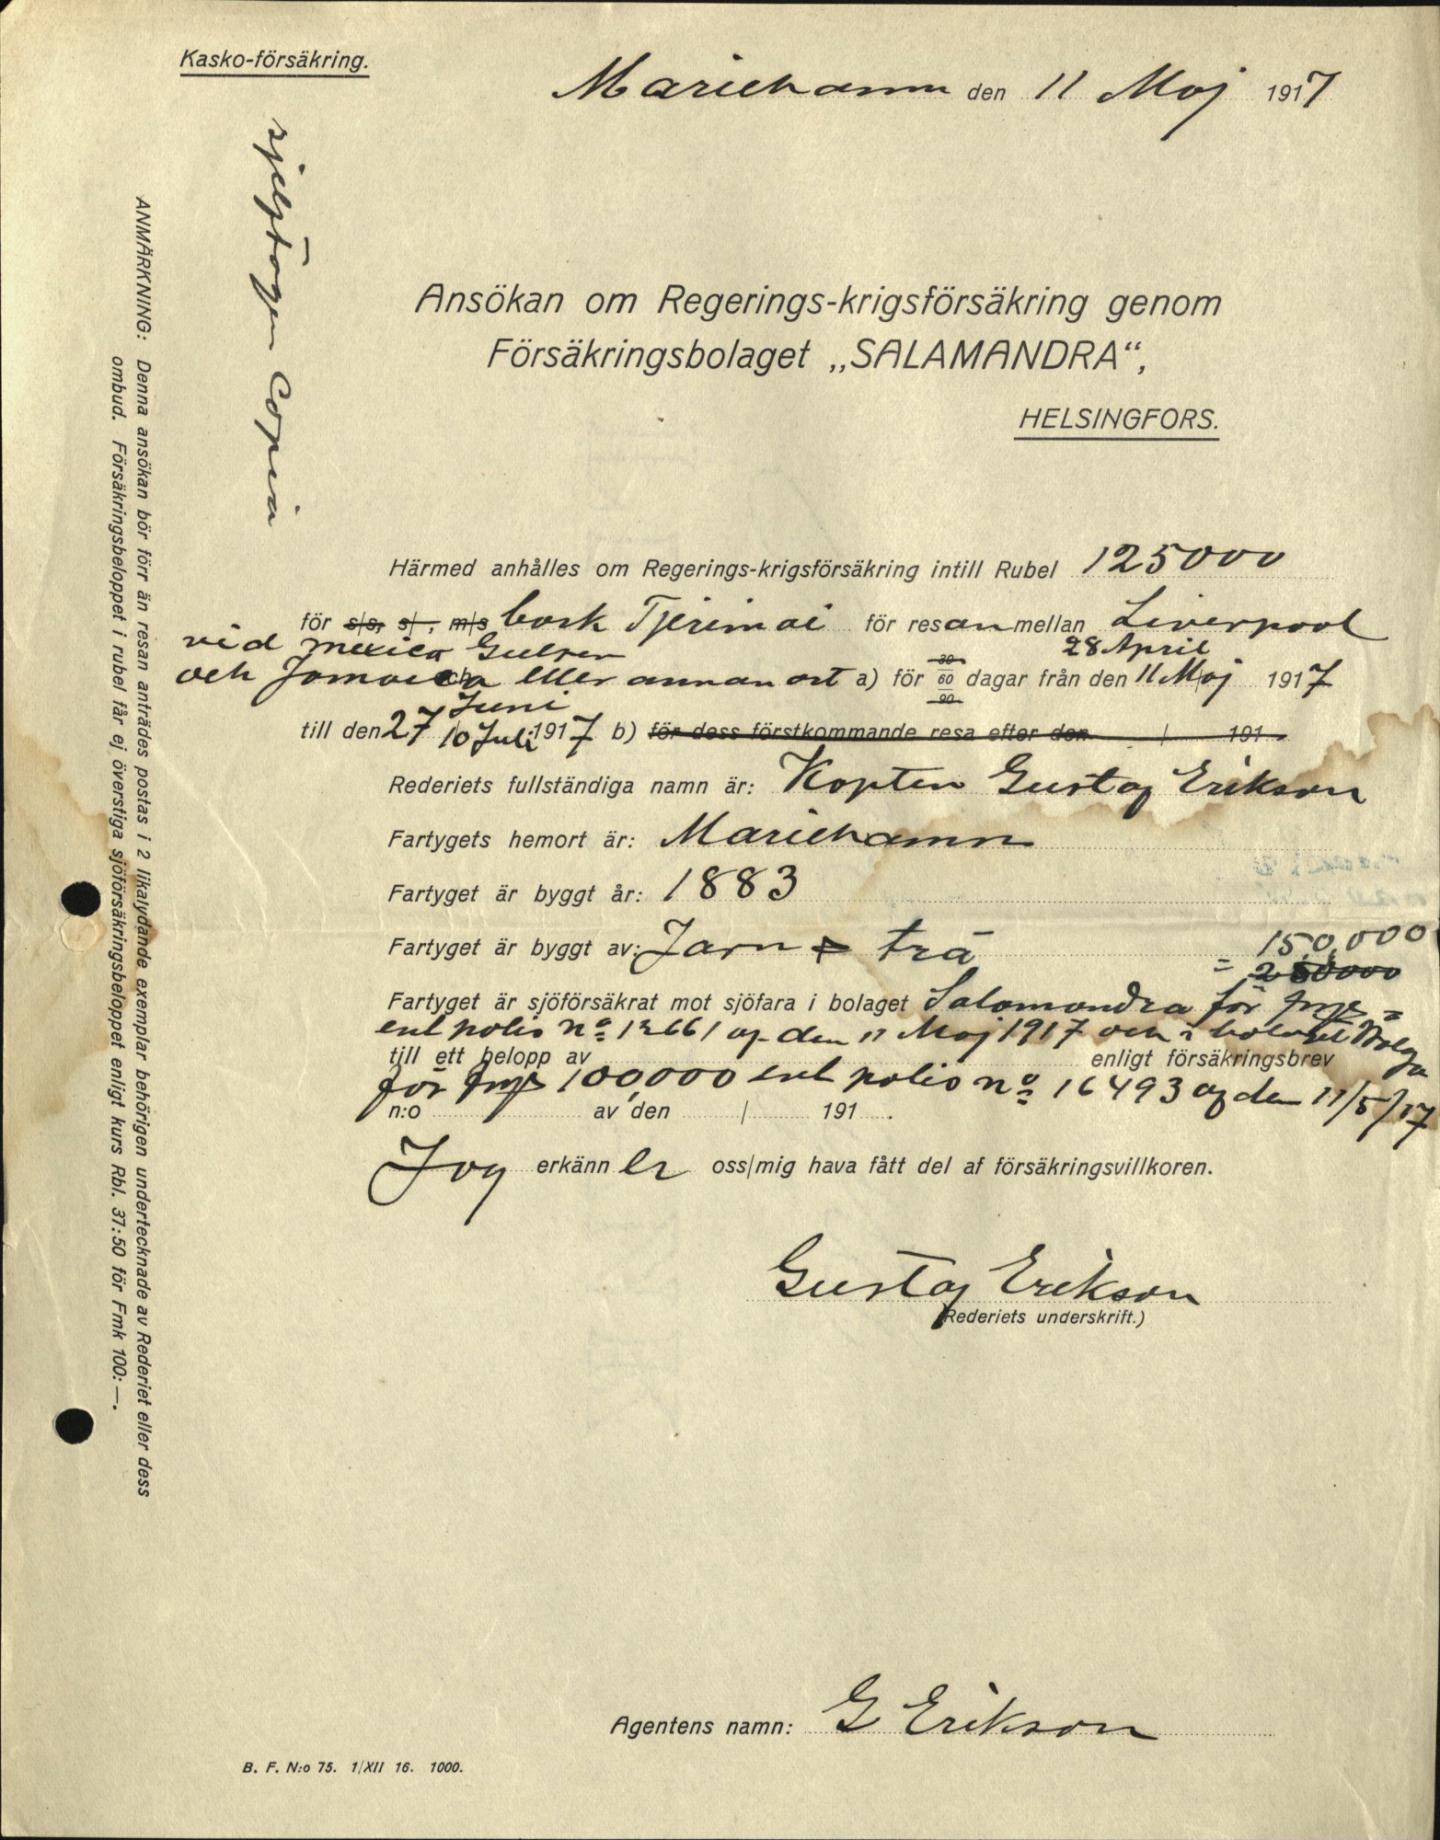 Kasko-försäkring.
Mariehamn den 11 Maj 1917
sjelftagen Copia
Ansökan om Regerings-krigsförsäkring genom
Försäkringsbolaget „SALAMANDRA“,
HELSINGFORS.
Härmed anhålles om Regerings-krigsförsäkring intill Rubel 125000
för s/s, s/, m/s bark Tjerimai för resan mellan Liverpool
vid mexico Gulfen
28 April
och Jamaica eller annan ort a) för 30 60 90 dagar från den 11 Maj 1917
Juni
till den 27 10 Juli 1917 b) för dess förstkommande resa efter den / 191
Rederiets fullständiga namn är: Kapten Gustaf Erikson
Fartygets hemort är: Mariehamn
Fartyget är byggt år: 1883
Fartyget är byggt av: Jarn & trä
150,000
= 250000
Fartyget är sjöförsäkrat mot sjöfara i bolaget Salamandra för fmk =
enl polis nº 12661 af den 11 Maj 1917 och i bolaget Wolga
till ett belopp av enligt försäkringsbrev
för fmk 100,000 enl polis nº 16493 af den 11/5/17
n:o av den / 191 .
Jag erkänner oss/mig hava fått del af försäkringsvillkoren.
Gustaf Erikson
(Rederiets underskrift.)
Agentens namn: G Erikson
B. F. N:o 75. 1/XII 16. 1000.
ANMÄRKNING: Denna ansökan bör förr än resan anträdes postas i 2 likalydande exemplar behörigen undertecknade av Rederiet eller dess
ombud. Försäkringsbeloppet i rubel får ej överstiga sjöförsäkringsbeloppet enligt kurs Rbl. 37:50 för Fmk 100:—.